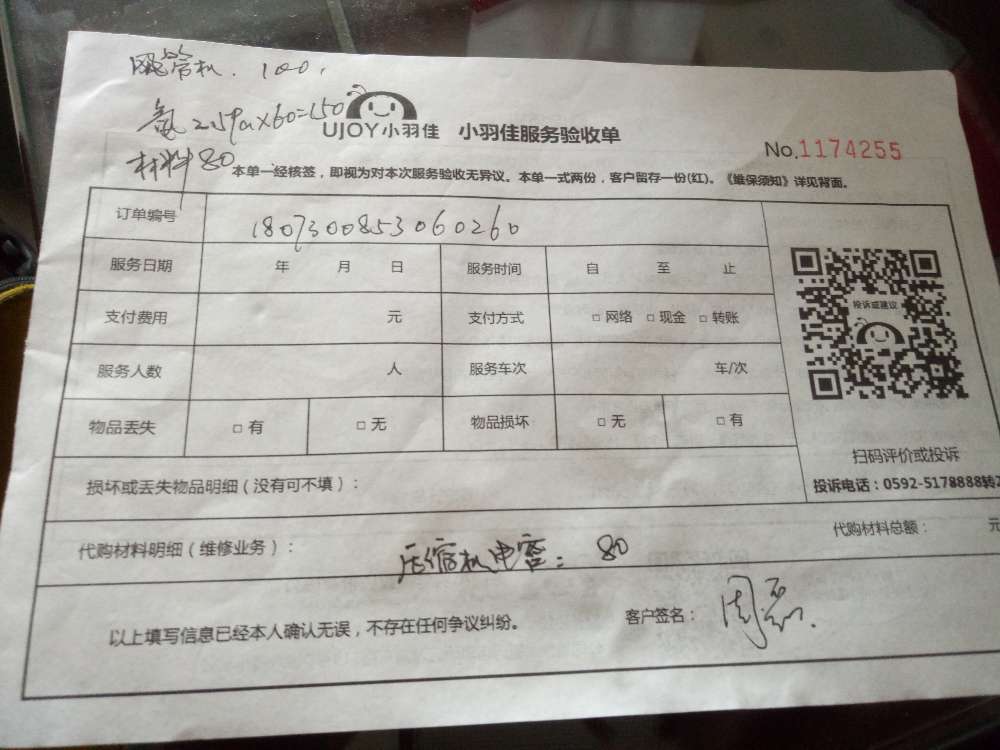 机. 100.
氟 2.5Pa×60=150
材料80
UJOY小羽佳 小羽佳服务验收单
No.1174255
本单一经核签，即视为对本次服务验收无异议。本单一式两份，客户留存一份(红)。《维保须知》详见背面。
订单编号 1807300853060260
服务日期 年 月 日 服务时间 自 至 止
投诉或建议
支付费用 元 支付方式 □ 网络 □ 现金 □ 转账
服务人数 人 服务车次 车/次
物品丢失 □ 有 □ 无 物品损坏 □ 无 □ 有
扫码评价或投诉
投诉电话：0592-5178888转2
损坏或丢失物品明细（没有可不填）：
代购材料总额： 元
代购材料明细（维修业务）： 压缩机电容：80
客户签名： 周
以上填写信息已经本人确认无误，不存在任何争议纠纷。